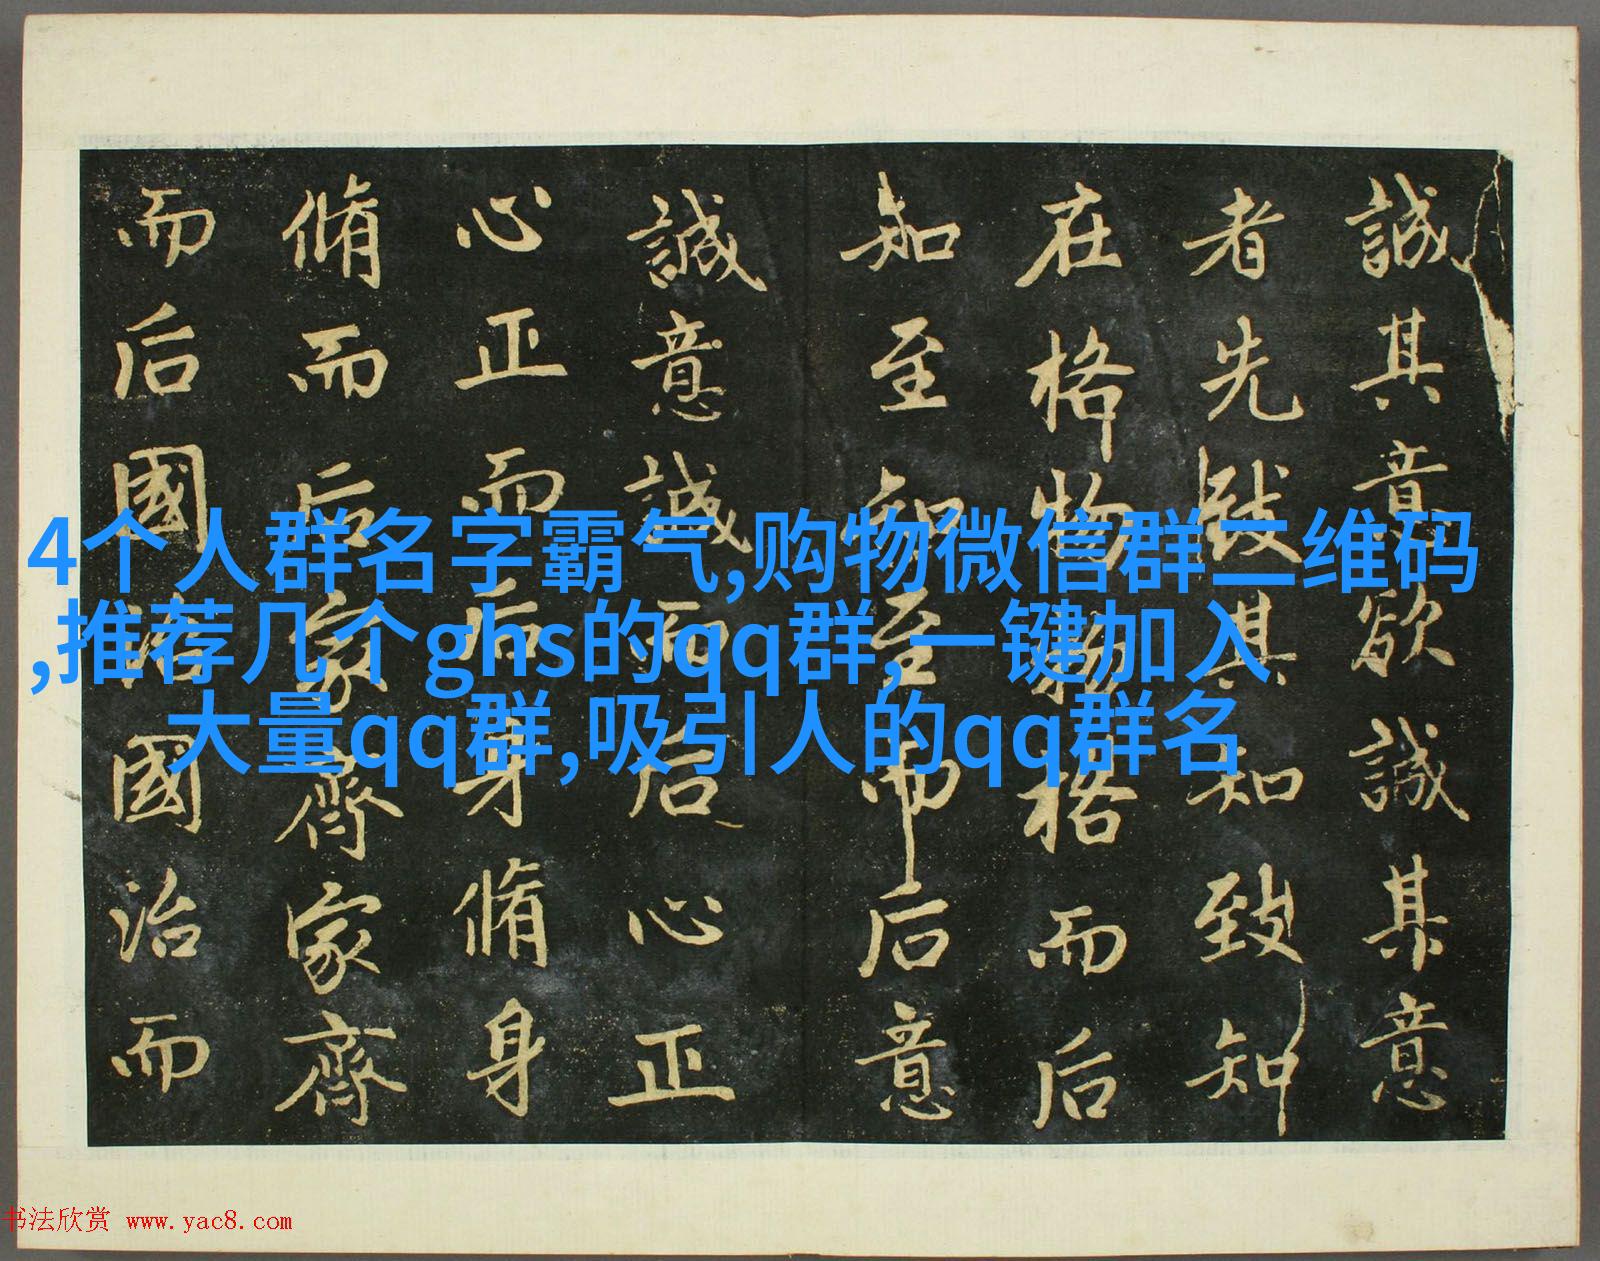 誠其意欲誠其意
者先致其知致知
在格物物格而后
知至知至而后意
誠意誠而后心正
心正而后身脩身
脩而后家齊家齊
而后國治國治而
4个人群名字霸气,购物微信群二维码
,推荐几个ghs的qq群,一键加入
大量qq群,吸引人的qq群名
书法欣赏 www.yac8.com